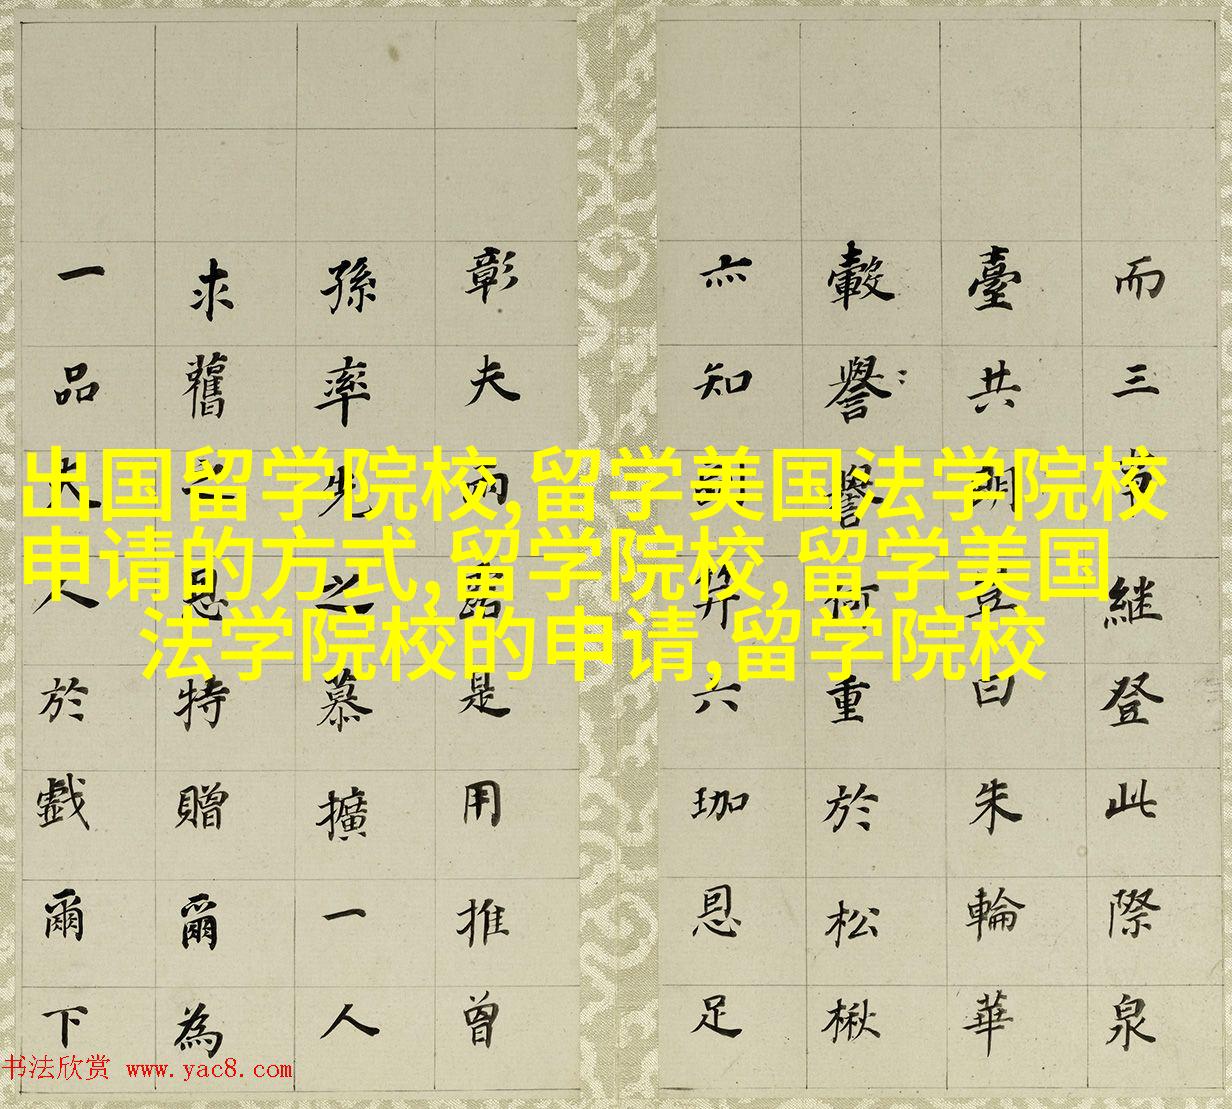 出国留学院校,留学美国法学院校
申请的方式,留学院校,留学美国
法学院校的申请,留学院校
而三繼登此際泉
臺共曰朱輪華
轂譽重於松楸
亦知笄六珈恩足
彰夫是用推曾
孫率先之慕擴一人
求舊恩特贈爾為
一品夫人於戲爾下
书法欣赏 www.yac8.com